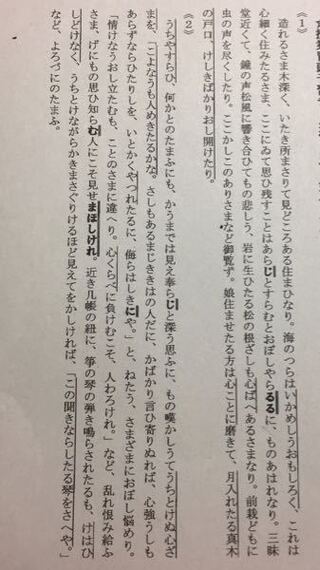 (1)
造れるさま木深く、いたき所まさりて見どころある住まひなり。海のつらはいかめしうおもしろく、これは
心細く住みたるさま、ここにゐて思ひ残すことはあらじとすらむとおぼしやらるるに、ものあはれなり。三昧
堂近くて、鐘の声松風に響き合ひてもの悲しう、岩に生ひたる松の根ざしも心ばへあるさまなり。前栽どもに
虫の声を尽くしたり。ここかしこのありさまなど御覧ず。娘住ませたる方は心ことに磨きて、月入れたる真木
の戸口、けしきばかりおし開けたり。
(2)
うちやすらひ、何かとのたまふにも、かうまでは見え奉らじと深う思ふに、もの嘆かしうてうちとけぬ心ざ
まを、こよなうも人めきたるかな。さしもあるまじききはの人だに、かばかり言ひ寄りぬれば、心強うしも
あらずならひたりしを、いとかくやつれたるに、侮らはしきにや。」と、ねたう、さまざまにおぼし悩めり。
「情けなうおし立たむも、ことのさまに違へり。心くらべに負けむこそ、人わろけれ。」など、乱れ恨み給ふ
さま、げにもの思ひ知らむ人にこそ見せまほしけれ。近き几帳の紐に、箏の琴の弾き鳴らされたるも、けはひ
しどけなく、うちとけながらかきまさぐりけるほど見えてをかしければ、「この聞きならしたる琴をさへや。」
など、よろづにのたまふ。